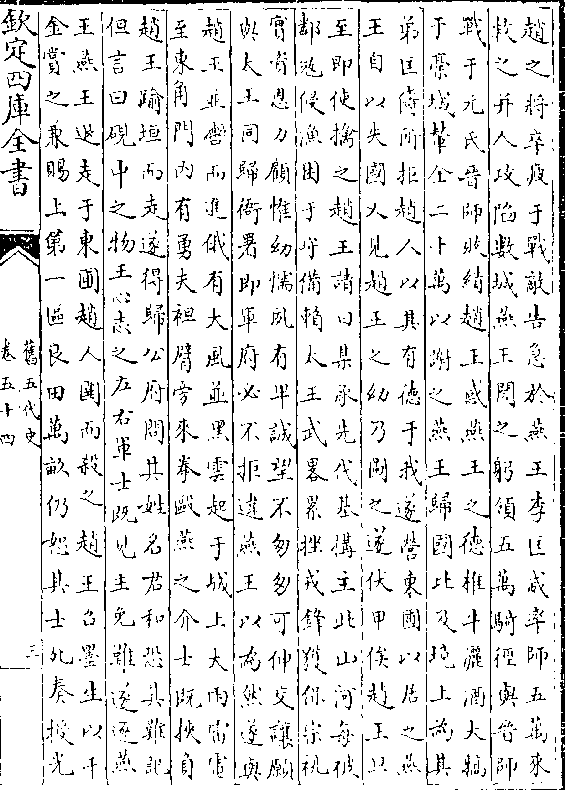 趙之將卒疲于戰敵告急於燕王李匡威率師五萬來
救之并人攻陷數城燕王聞之躬領五萬騎徑與晉師
戰于元氏晉師敗績趙王感燕王之德椎牛灑酒大犒
于藁城輦金二十萬以謝之燕王歸國比及境上為其
弟匡儔所拒趙人以其有德于我遂營東圃以居之燕
王自以失國又見趙王之幼乃圖之遂伏甲俟趙王旦
至即使擒之趙王請曰某承先代基搆主此山河每被
鄰寇侵漁困于守備賴大王武畧累挫戎鋒獲保宗祧
實資恩力顧惟幼懦夙有卑誠望不匆匆可伸交讓願
與大王同歸衙署即軍府必不拒違燕王以為然遂與
趙王並轡而進俄有大風並黑雲起于城上大雨雷電
至東角門內有勇夫袒臂旁來拳毆燕之介士既挾負
趙王踰垣而走遂得歸公府問其姓名君和恐其難記
但言曰硯中之物王心志之左右軍士既見主免難遂逐燕
王燕王退走于東圃趙人圍而殺之趙王召墨生以千
金賞之兼賜上第一區良田萬畝仍恕其十死奏授光
欽定四庫全書
舊五代史
卷五十四
三